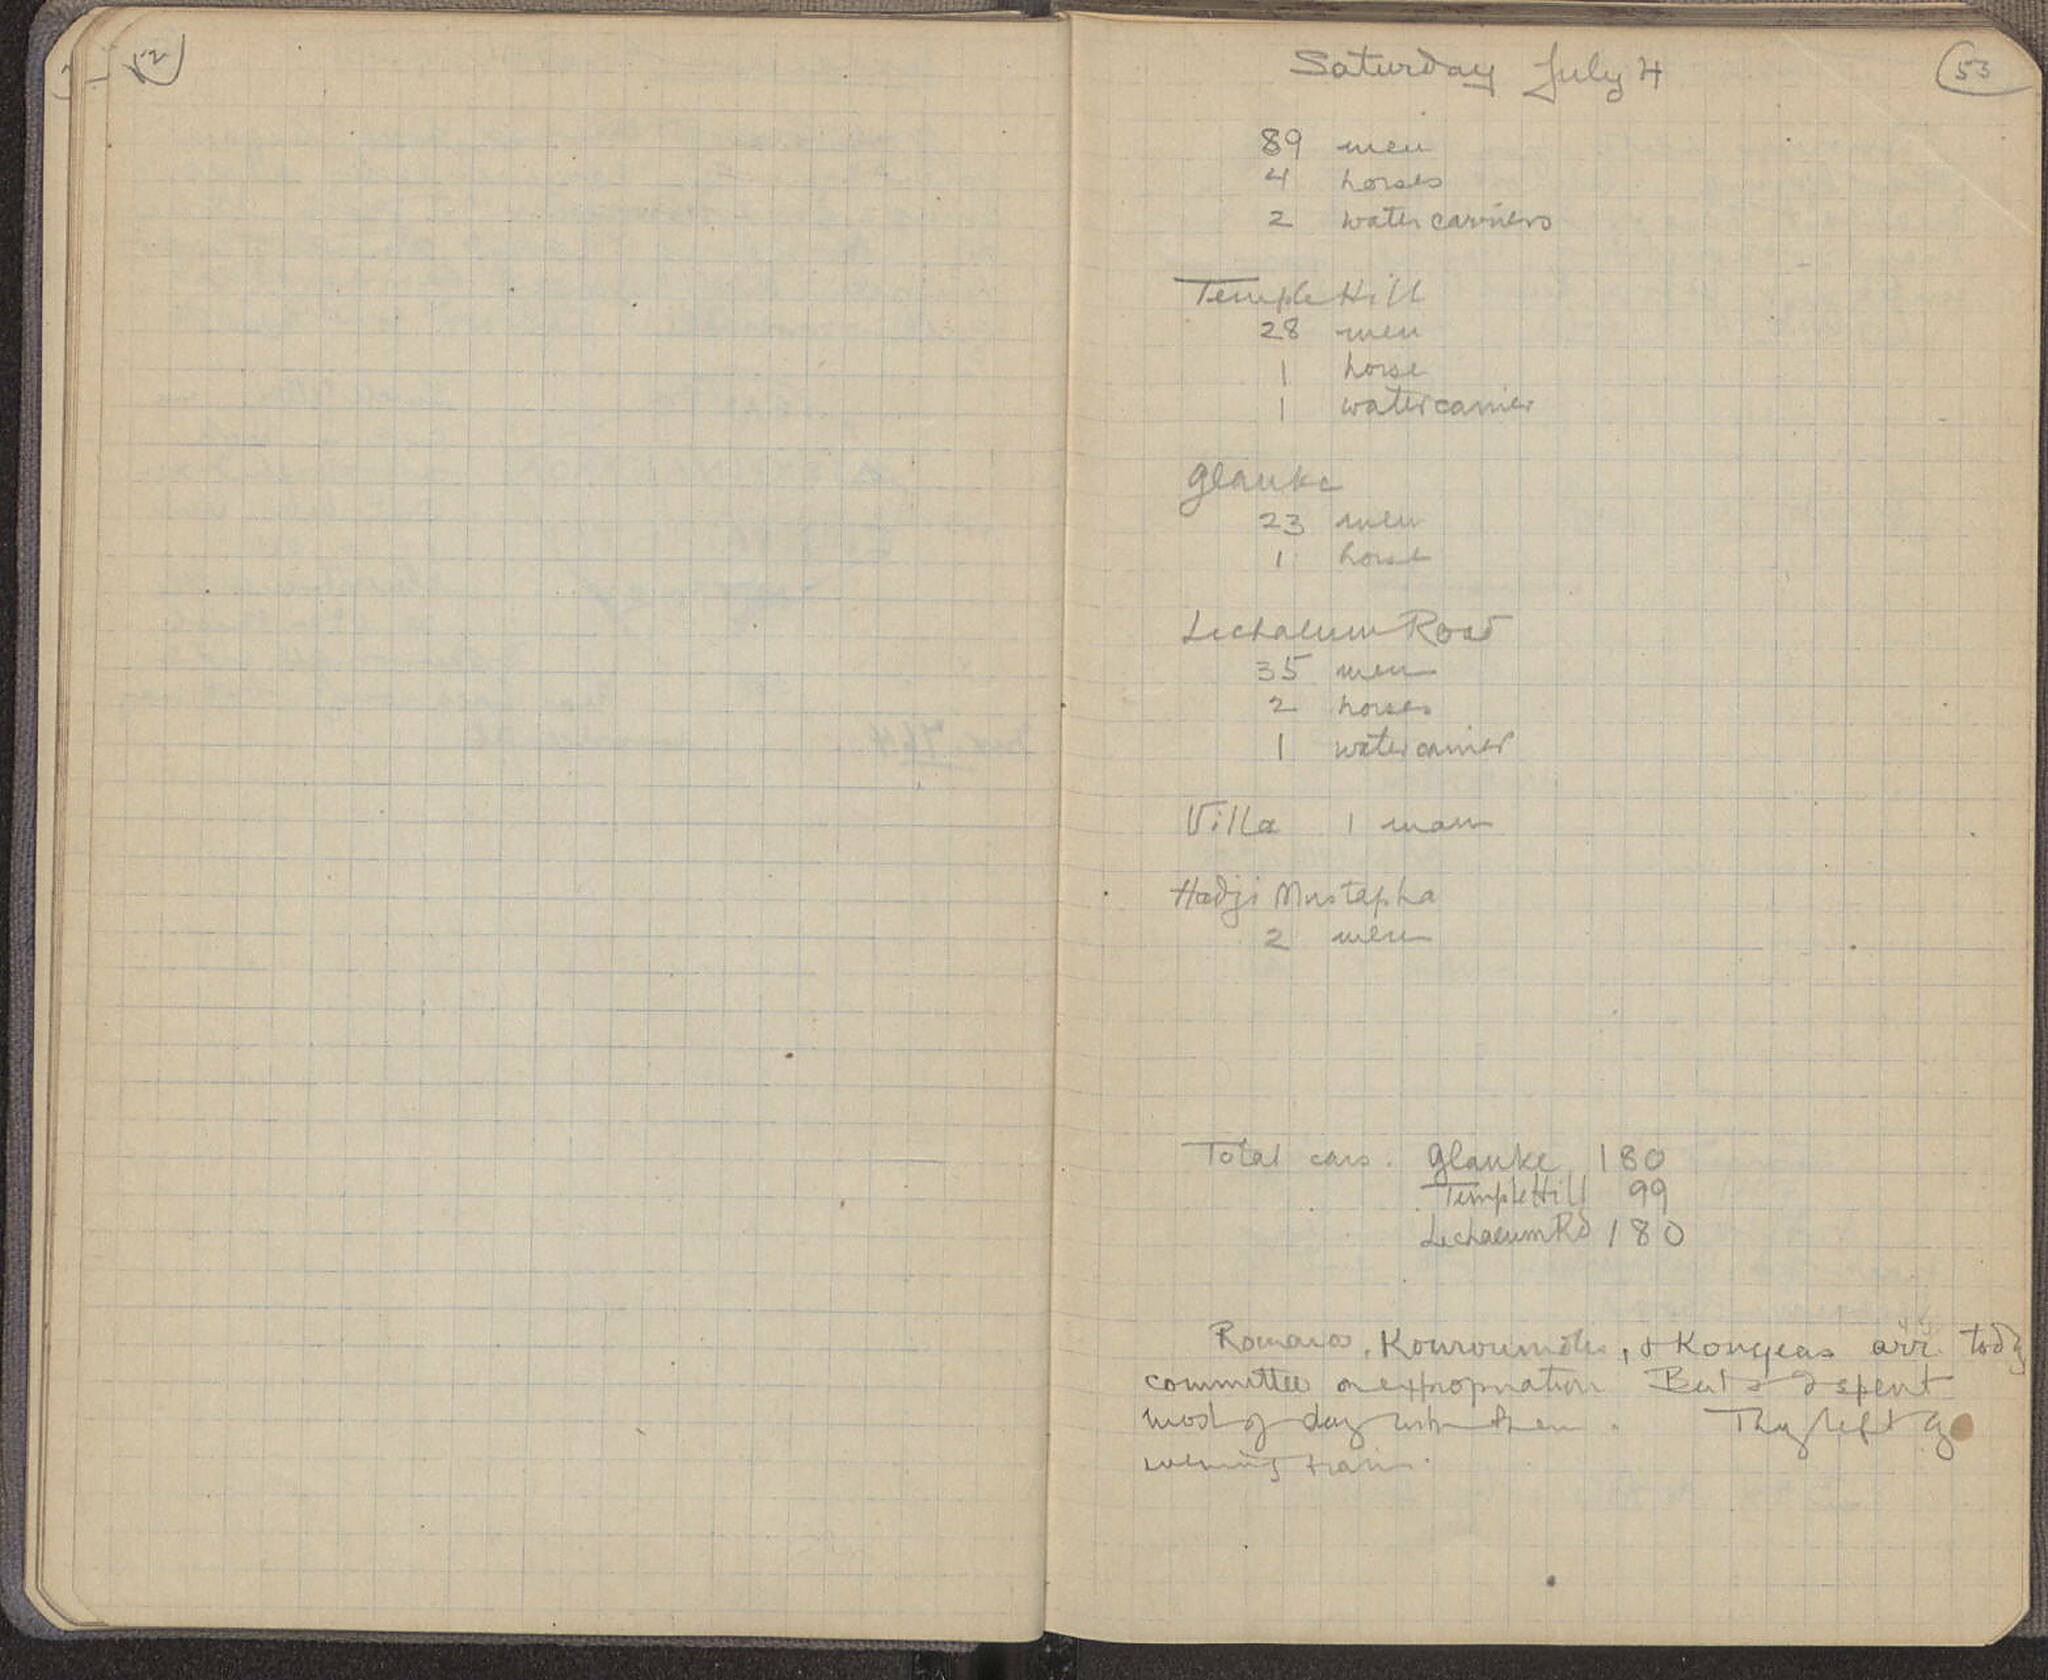 52
Saturday July 4
53
89 men
4 horses
2 water carriers
Temple Hill
28 men
1 horse
1 water carrier
Glauke
23 men
1 horse
Lechaeum Road
35 men
2 horses
1 water carrier
Villa 1 man
Hadji Mustapha
2 men
Total cars. Glauke 180
Temple Hill 99
Lechaeum Rd 180
Romaios, & Kongeas arr. tody
committee on expropriation spent
most of day with them. They left by
evening train.